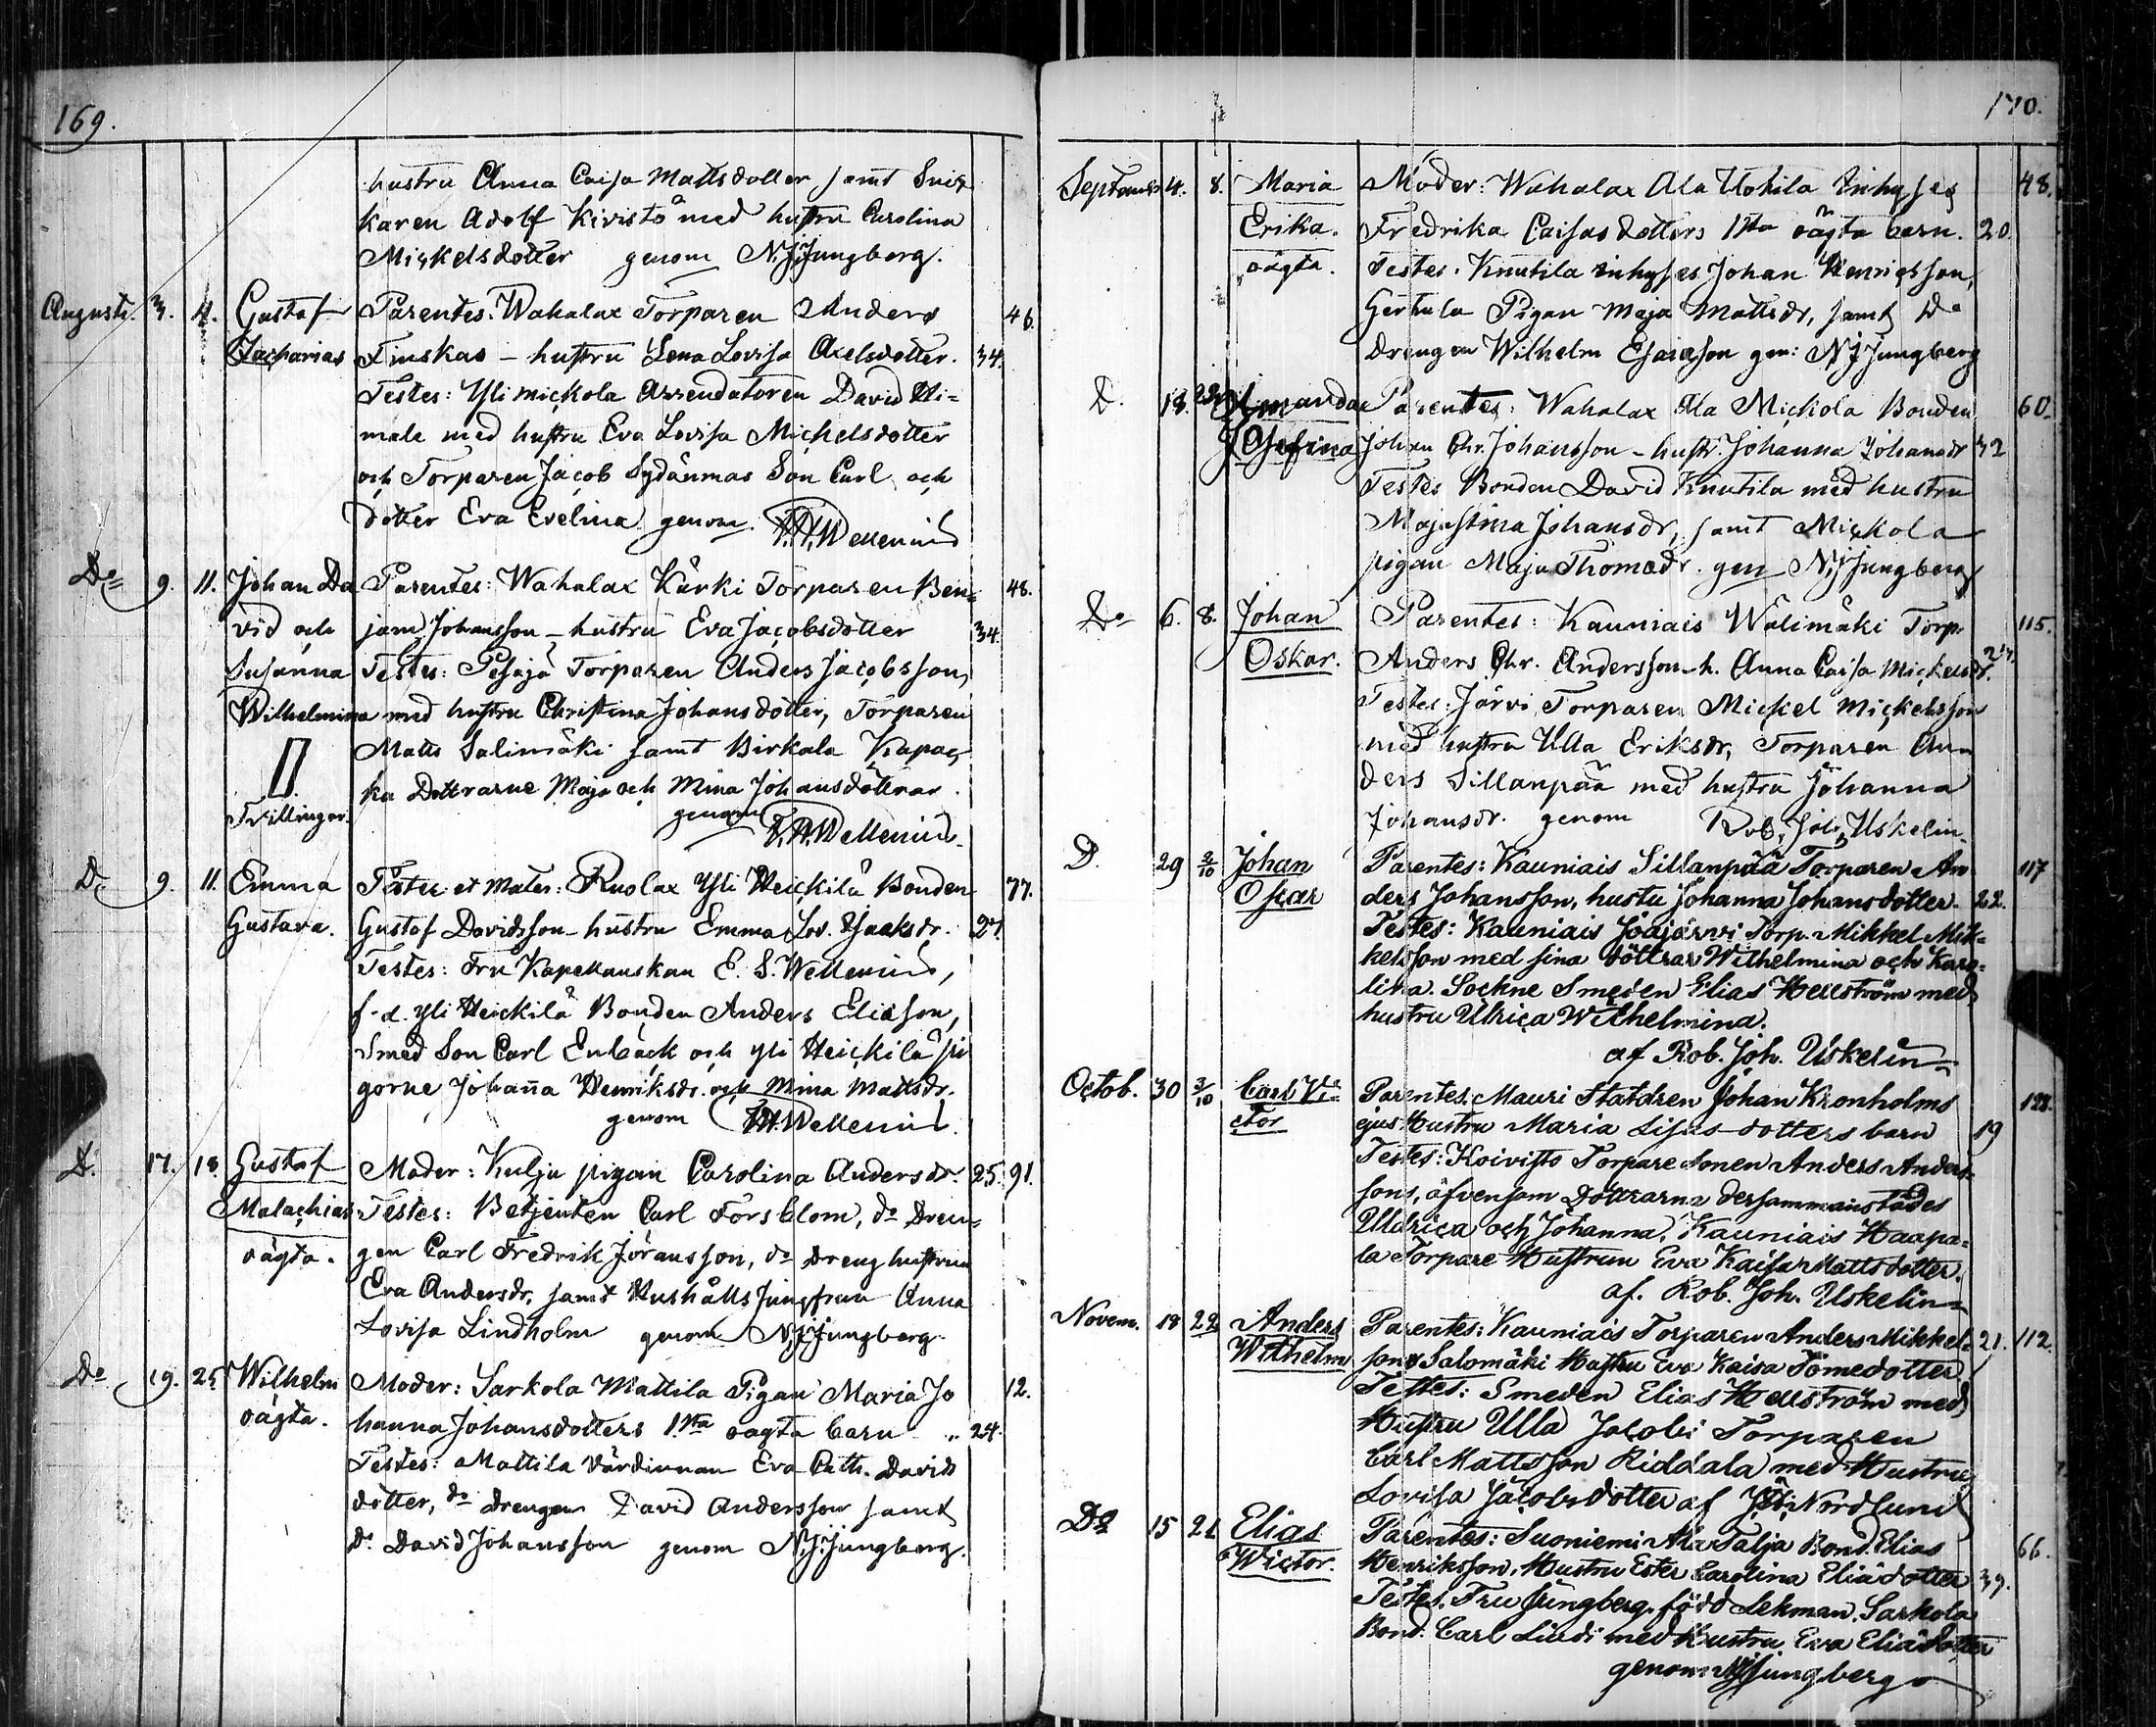 169.
hustru Anna Caisa Mattsdotter samt Snic
karen Adolf Kivistö med hustru Carolina
Mickelsdotter genom N. J. Ljungberg.
Augusti. 3. 4. Gustaf Parentes: Wahalax Torparen Anders 46.
Zacharias Finskas – hustru Lena Lovisa Axelsdotter. 34.
Testes: Yli mickola Arrendatoren David
male med hustru Eva Lovisa Michelsdotter
och Torparen Jacob Sydänmas Son Carl och
dotter Eva Evelina genom Wellenius
Do 9. 11. Johan Da Parentes: Wahalax Kärki Torparen Ben= 48.
vid och jam Johansson – hustru Eva Jacobsdotter 34.
Susanna Testes: Torparen Anders Jacobsson,
Wilhelmina med hustru Christina Johansdotter, Torparen
Matts Salimäki samt Birkala Kapac
Tvillingar. ka Dottrarne Maja och Mina Johansdöttrar.
genom Wellenius.
Do 9. 11. Emma Pater et Mater: Ruolax Yli Heickilä Bonden 77.
Gustava. Gustaf Davidsson – hustru Emma Lov. Isaksdr. 27.
Testes: Fru Kapellanskan E. S. Wellenius,
f. d. Yli Heickilä Bonden Anders Eliasson,
Smed Son Carl Enbäck och Yli Heickilä pi
gorne Johanna Henriksdr. och Mina Mattsdr.
genom Wellenius.
D. 17. 18. Gustaf Moder: Kulju pigan Carolina Andersdr. 25. 91.
Malachias Testes: Betjenten Carl Forsblom, do Dren=
oägta. gen Carl Fredrik Jöransson, do Dreng hustrun
Eva Andersdr, samt Hushålls Jungfrun Anna
Lovisa Lindholm genom N. J. Ljungberg.
Do 19. 25. Wilhelm Moder: Sarkola Mattila Pigan Maria Jo 12.
oägta. hanna Johansdotters 1sta oägta barn „ 24.
Testes: Mattila Värdinnan Eva Cath. Davids
dotter, do Drengen David Andersson samt
Do David Johansson genom N. J. Ljungberg.
170.
September 4. 8. Maria Moder: Wahalax Ala Uotila Inhyses 48.
Erika. Fredrika Caisas dotters 1sta oägta barn. 20.
oägta. Testes. Knutila Inhyses Johan Henricsson,
Pigan Maja Mattsdr, samt Do
Drengen Wilhelm Esaiasson gen: N. J. Ljungberg
D. 18. 23. Amanda Parentes: Wahalax Ala Mickola Bonden 60.
Josefina Johan Chr. Johansson – hustr. Johanna Johansdr 32
Testes Bonden David Knutila med hustru
Majastina Johansdr, samt Mickola
pigan Maja Thomasdr. gen N. J. Ljungberg
Do 6. 8. Johan Parentes: Kauniais Wälimäki Torp. 115.
Oskar. Anders Chr. Andersson – h. Anna Caisa Mickelsdr.
Testes: Järvi Torparen Mickel Mickelsson
med hustru Ulla Eriksdr, Torparen An
ders Sillanpää med hustru Johanna
Johansdr. genom Rob. Joh. Uskelin
D. 29 2/10 Johan Parentes: Kauniais Sillanpää Torparen An 117
Oskar ders Johansson, hustu Johanna Johansdotter. 22.
Testes: Kauniais Joajärvi Torp. Mikkel Mik=
kelsson med sina döttrar Wilhelmina och Karo=
lina. Sockne Smeden Elias Hellström med
hustru Ulrica Wilhelmina.
af Rob. Joh. Uskelin
Octob. 30 3/10 Carl Vi= Parentes: Mauri Statdren Johan Kronholms 122.
ctor ejus Hustru Maria Lisas-dotters barn 19
Testes: Koivisto Torpare sonen Anders Anders
sons, äfvensom Döttrarna dersammanstädes
Uldrica och Johanna, Kauniais Haapa=
la Torpare Hustrun Eva Kaisa Mattsdotter.
af. Rob. Joh. Uskelin
Novem. 18 22 Anders Parentes: Kauniais Torparen Anders Mikkel= 21. 112.
Wilhelm sons Salomäki Hustru Eva Kaisa Tomedotter.
Testes: Smeden Elias Hellström med
Hustru Ulla Jacobi Torparen
Carl Mattsson Riddala med Hustru
Lovisa Jacobsdotter af Nordlund
Do 15 21 Elias Parentes: Suoniemi Ala Talja Bond. Elias 66.
Wictor. Henriksson, Hustru Ester Carolina Eliädotter 39.
Testes. Fru Ljungberg född Lekman. Sarkola
Bond. Carl Liudi med Hustru Eva Eliädotter
genom N. J. Ljungberg